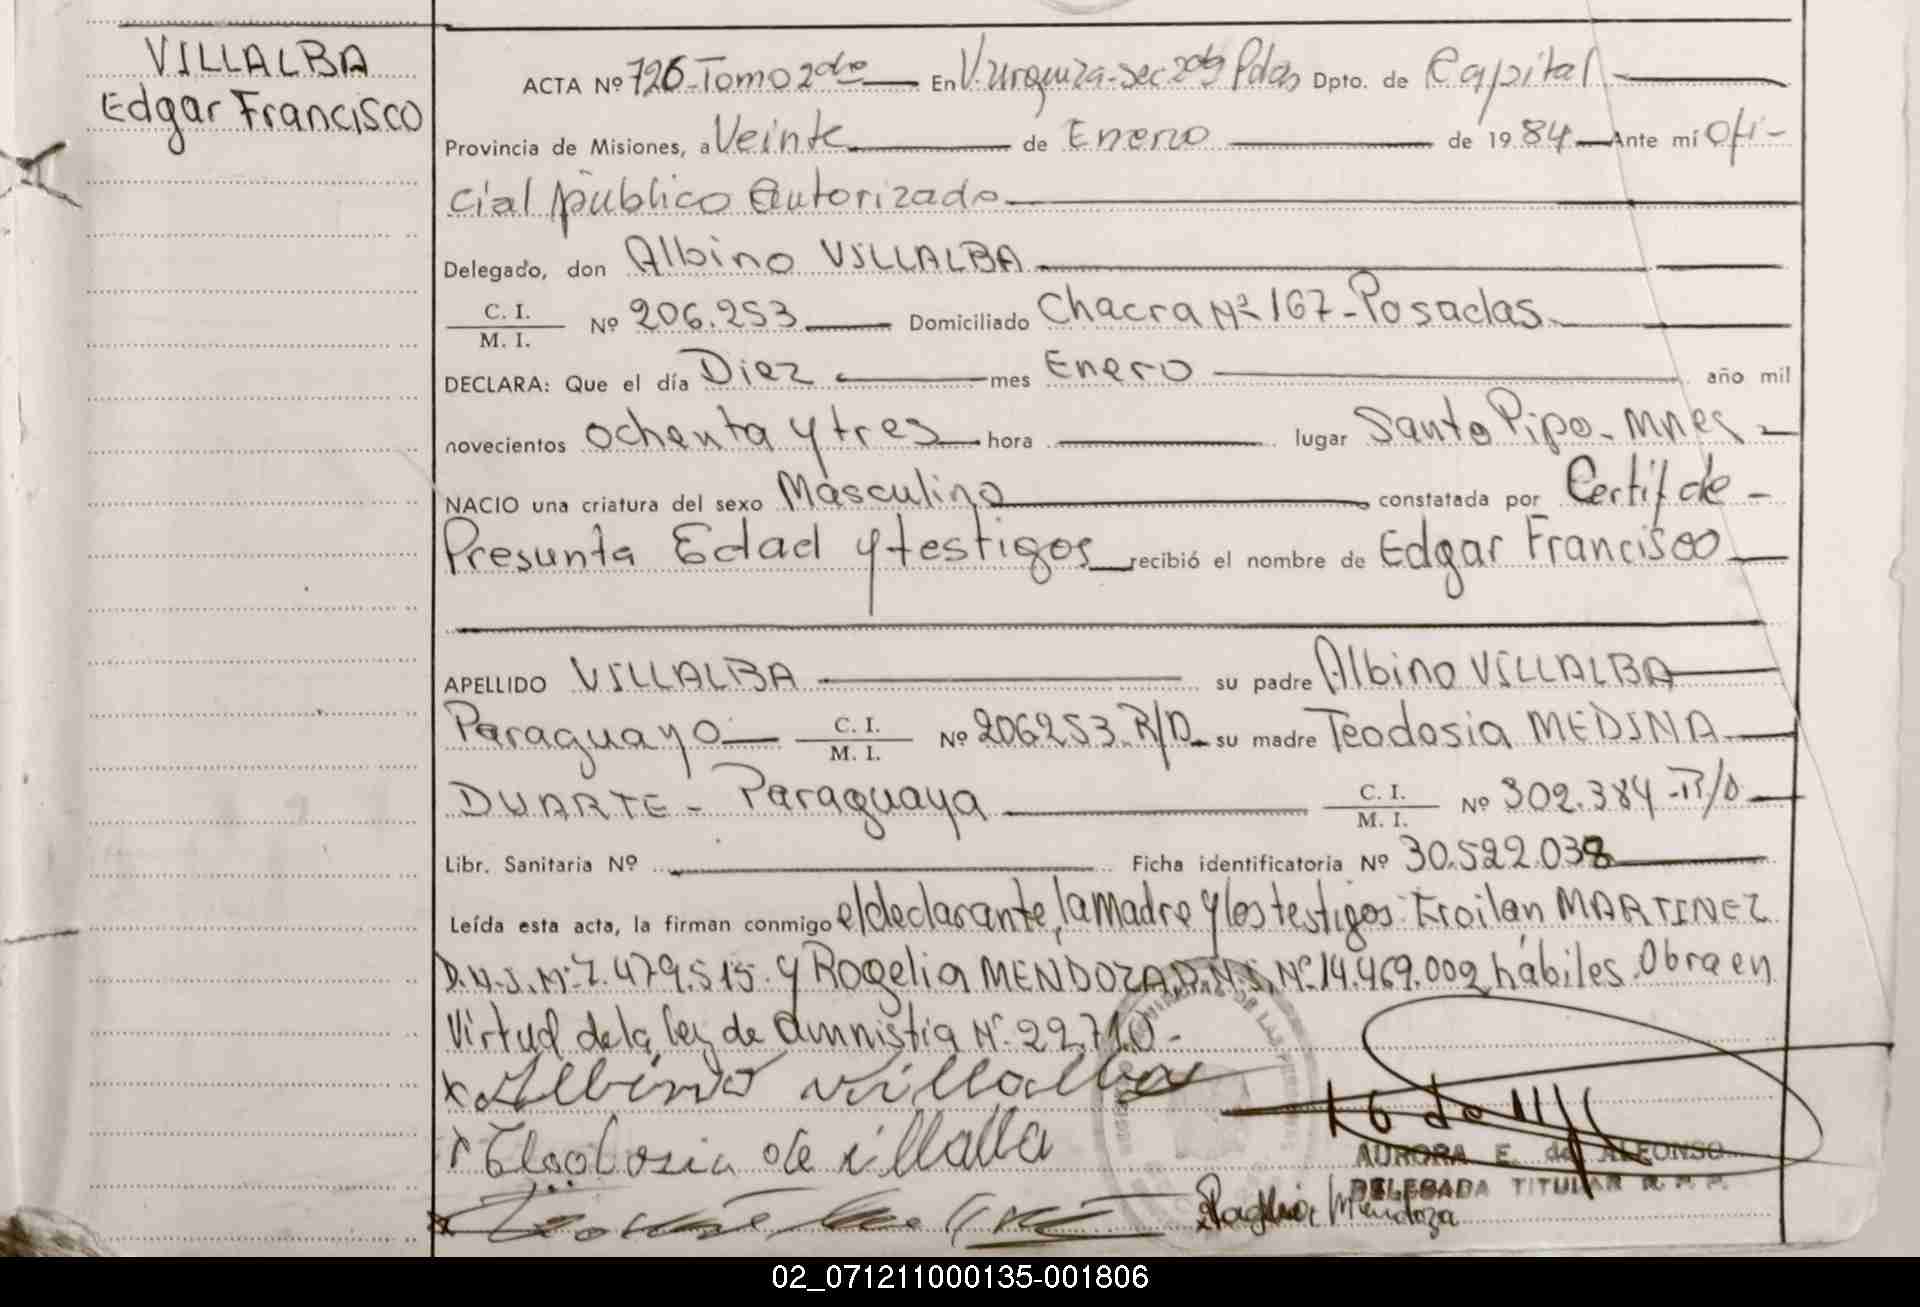 VILLALBA
Edgar Francisco
ACTA Nº 726-Tomo 2do En V. Urquiza-Sec 2da Pdas Dpto. de Capital
Provincia de Misiones, a Veinte de Enero de 1984 Ante mí Ofi-
cial público autorizado
Delegado, don Albino VILLALBA
C. I.
M. I. Nº 206.253 Domiciliado Chacra Nº 167-Posadas
DECLARA: Que el día Diez mes Enero año mil
novecientos ochenta y tres hora lugar Santo Pipo-Mnes-
NACIO una criatura del sexo Masculino constatada por Certif de-
Presunta Edad y testigos recibió el nombre de Edgar Francisco
APELLIDO VILLALBA su padre Albino VILLALBA
Paraguayo C. I.
M. I. Nº 206253 R/D su madre Teodosia MEDINA
DUARTE- Paraguaya C. I.
M. I. Nº 302.384-R/D
Libr. Sanitaria Nº Ficha identificatoria Nº 30.522.038
Leída esta acta, la firman conmigo el declarante, la madre y los testigos: Froilan MARTINEZ
D.N.I. Nº 7.479.515 y Rogelia MENDOZA D.N.I. Nº 14.469.002 hábiles. Obra en
Virtud de la ley de amnistia Nº 22.710-
x Albino Villalba
x Teodosia de villalla
AURORA E. de ALFONSO
DELEGADA TITULAR R. P. P.
Rogelia Mendoza
02_071211000135-001806